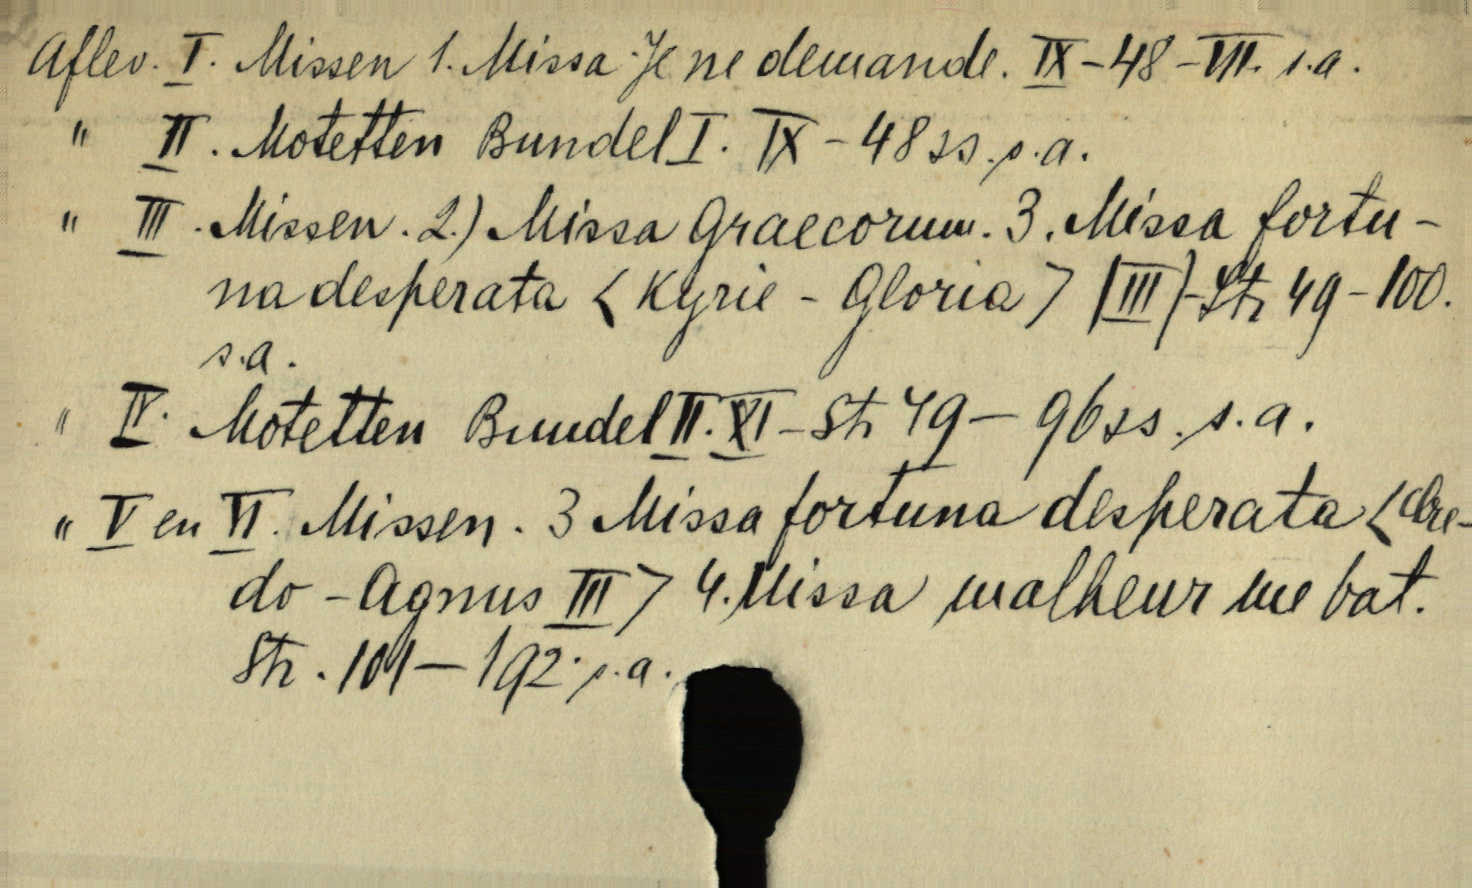 Aflev. I. Missen 1. Missa Je ne demande. IX - 48 - VII. s.a.
" II. Motetten Bundel I. IX - 48 ss. s.a.
" III. Missen. 2.) Missa Graecorum. 3. Missa fortu-
na desperata < Kyrie - Gloria > [III] - Str 49 - 100.
s.a.
" IV. Motetten Bundel II. XI - Str 49 - 96 ss. s.a.
" V en VI. Missen. 3 Missa fortuna desperata < Cre-
do - Agnus III > 4. Missa malheur me bat.
Str. 101 - 192. s.a.